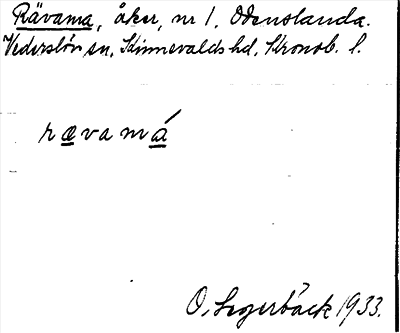 Rävama, åker, nr 1, Odenslanda.
Vederslöv sn, Kinnevalds hd, Kronob. l.
rævamá
O. Segerbäck 1933.